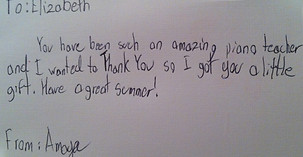 To: Elizabeth
You have been such an amazing piano teacher
and I wanted to Thank You so I got you a little
gift. Have a great summer!
From: Amaya